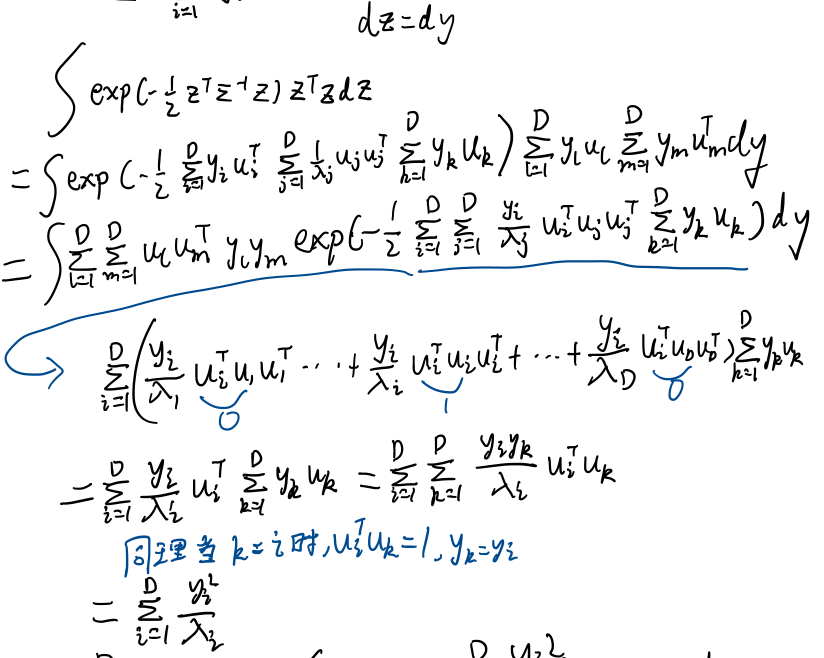 i=1
dz=dy
∫ exp(-1/2 z^T Σ^-1 z) z^T z dz
= ∫ exp(-1/2 Σ_{i=1}^D y_i u_i^T Σ_{j=1}^D 1/λ_j u_j u_j^T Σ_{k=1}^D y_k u_k) Σ_{l=1}^D y_l u_l Σ_{m=1}^D y_m u_m^T dy
= ∫ Σ_{l=1}^D Σ_{m=1}^D u_l u_m^T y_l y_m exp(-1/2 Σ_{i=1}^D Σ_{j=1}^D y_i/λ_j u_i^T u_j u_j^T Σ_{k=1}^D y_k u_k) dy
Σ_{i=1}^D (y_i/λ_1 u_i^T u_1 u_1^T ... + y_i/λ_i u_i^T u_i u_i^T + ... + y_i/λ_D u_i^T u_D u_D^T) Σ_{k=1}^D y_k u_k
0 1 0
= Σ_{i=1}^D y_i/λ_i u_i^T Σ_{k=1}^D y_k u_k = Σ_{i=1}^D Σ_{k=1}^D y_i y_k/λ_i u_i^T u_k
同理当 k=i 时, u_i^T u_k=1, y_k=y_i
= Σ_{i=1}^D y_i^2/λ_i